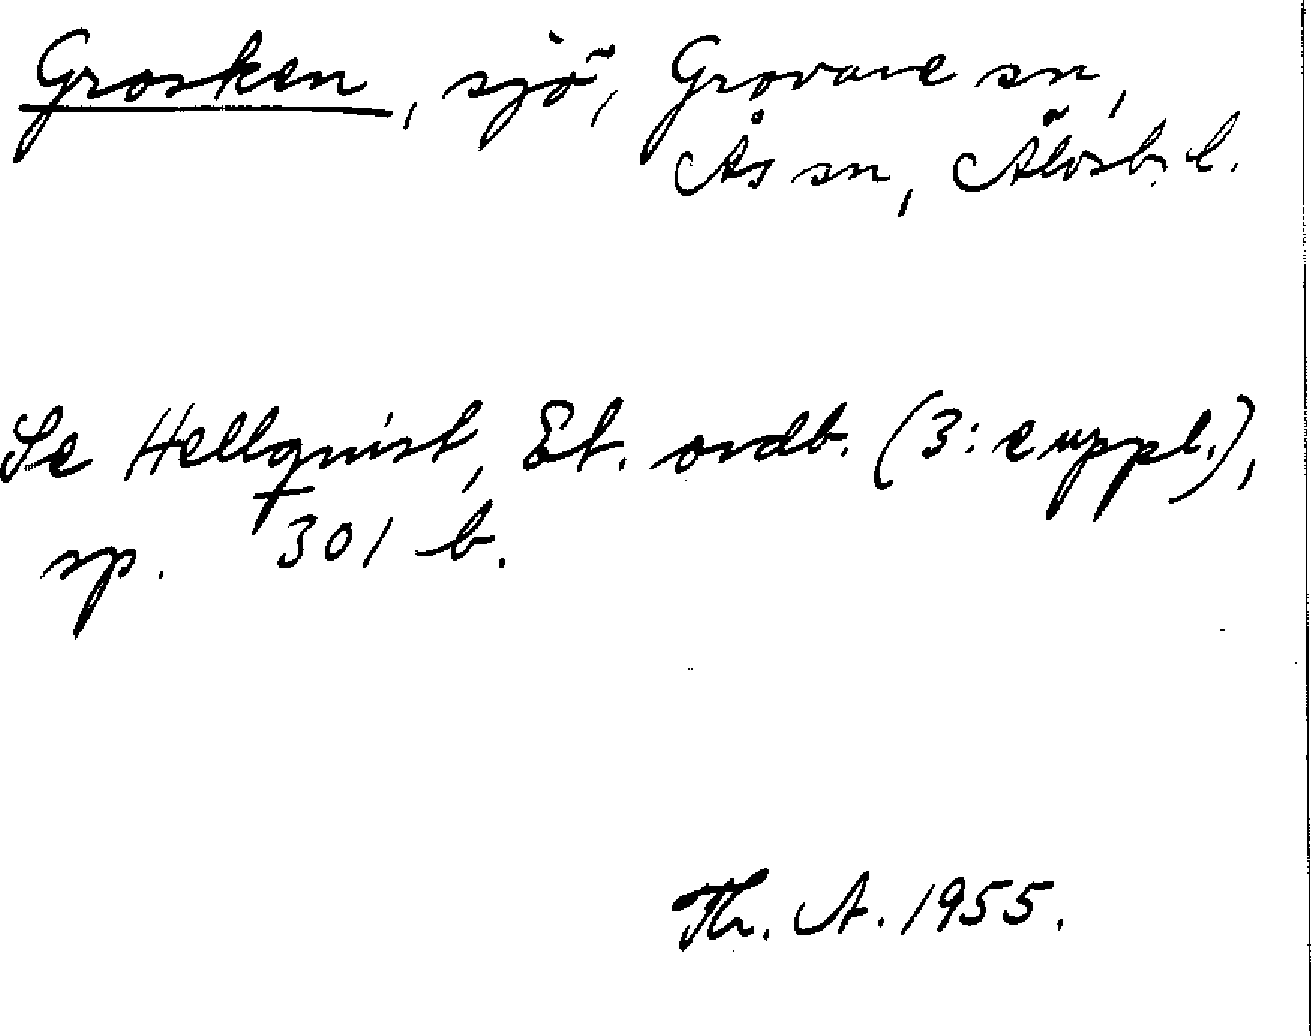 Grosken, sjö, Grovare sn,
Ås sn, Älvsb. l.
Se Hellquist, Et. ordb. (3:e uppl.),
sp. 301 b.
Th. A. 1955.